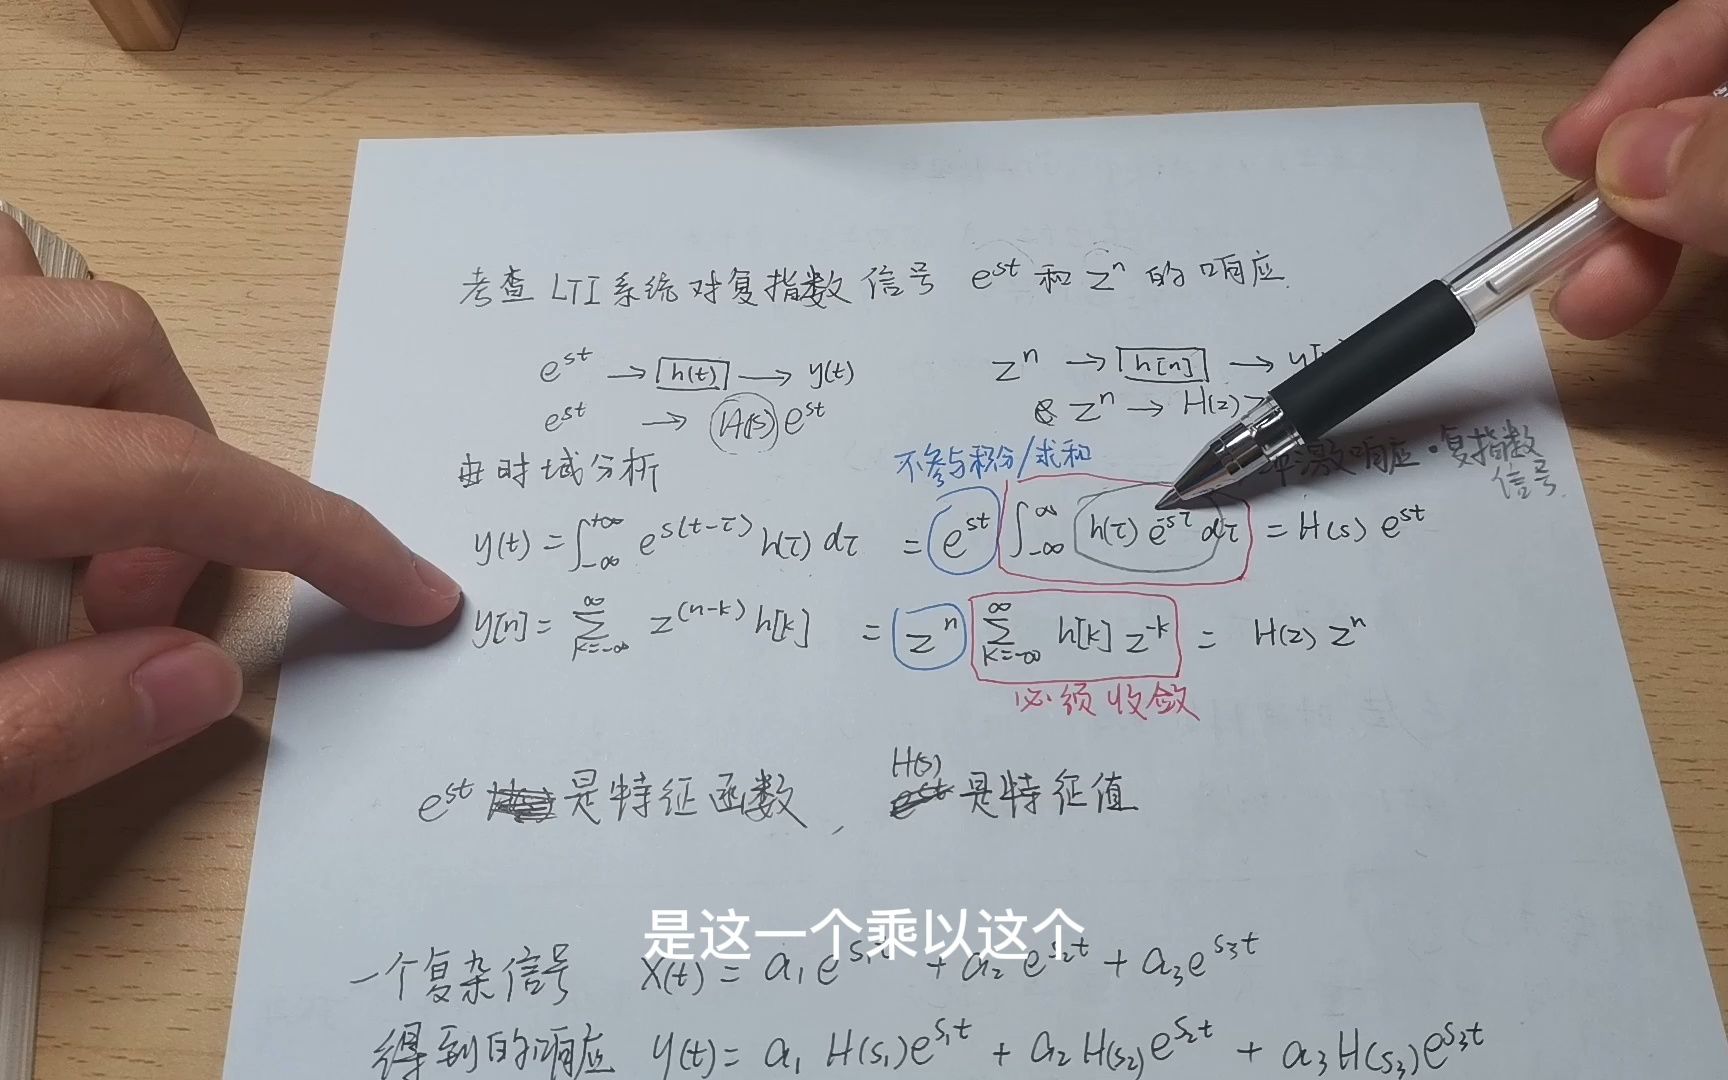 考查 LTI 系统对复指数信号 e^st 和 z^n 的响应.
e^st → h(t) → y(t)
z^n → h[n] →
e^st → H(s) e^st
z^n → H(z)
时域分析
不参与积分/求和
激响应·复指数信号
y(t) = ∫_{-∞}^{+∞} e^{s(t-τ)} h(τ) dτ = e^st ∫_{-∞}^{∞} h(τ) e^{-sτ} dτ = H(s) e^st
y[n] = ∑_{k=-∞}^{∞} z^{(n-k)} h[k] = z^n ∑_{k=-∞}^{∞} h[k] z^{-k} = H(z) z^n
必须收敛
e^st 是特征函数, H(s) 是特征值
是这一个乘以这个
一个复杂信号 x(t) = a₁e^{s₁t} + a₂e^{s₂t} + a₃e^{s₃t}
得到的响应 y(t) = a₁H(s₁)e^{s₁t} + a₂H(s₂)e^{s₂t} + a₃H(s₃)e^{s₃t}